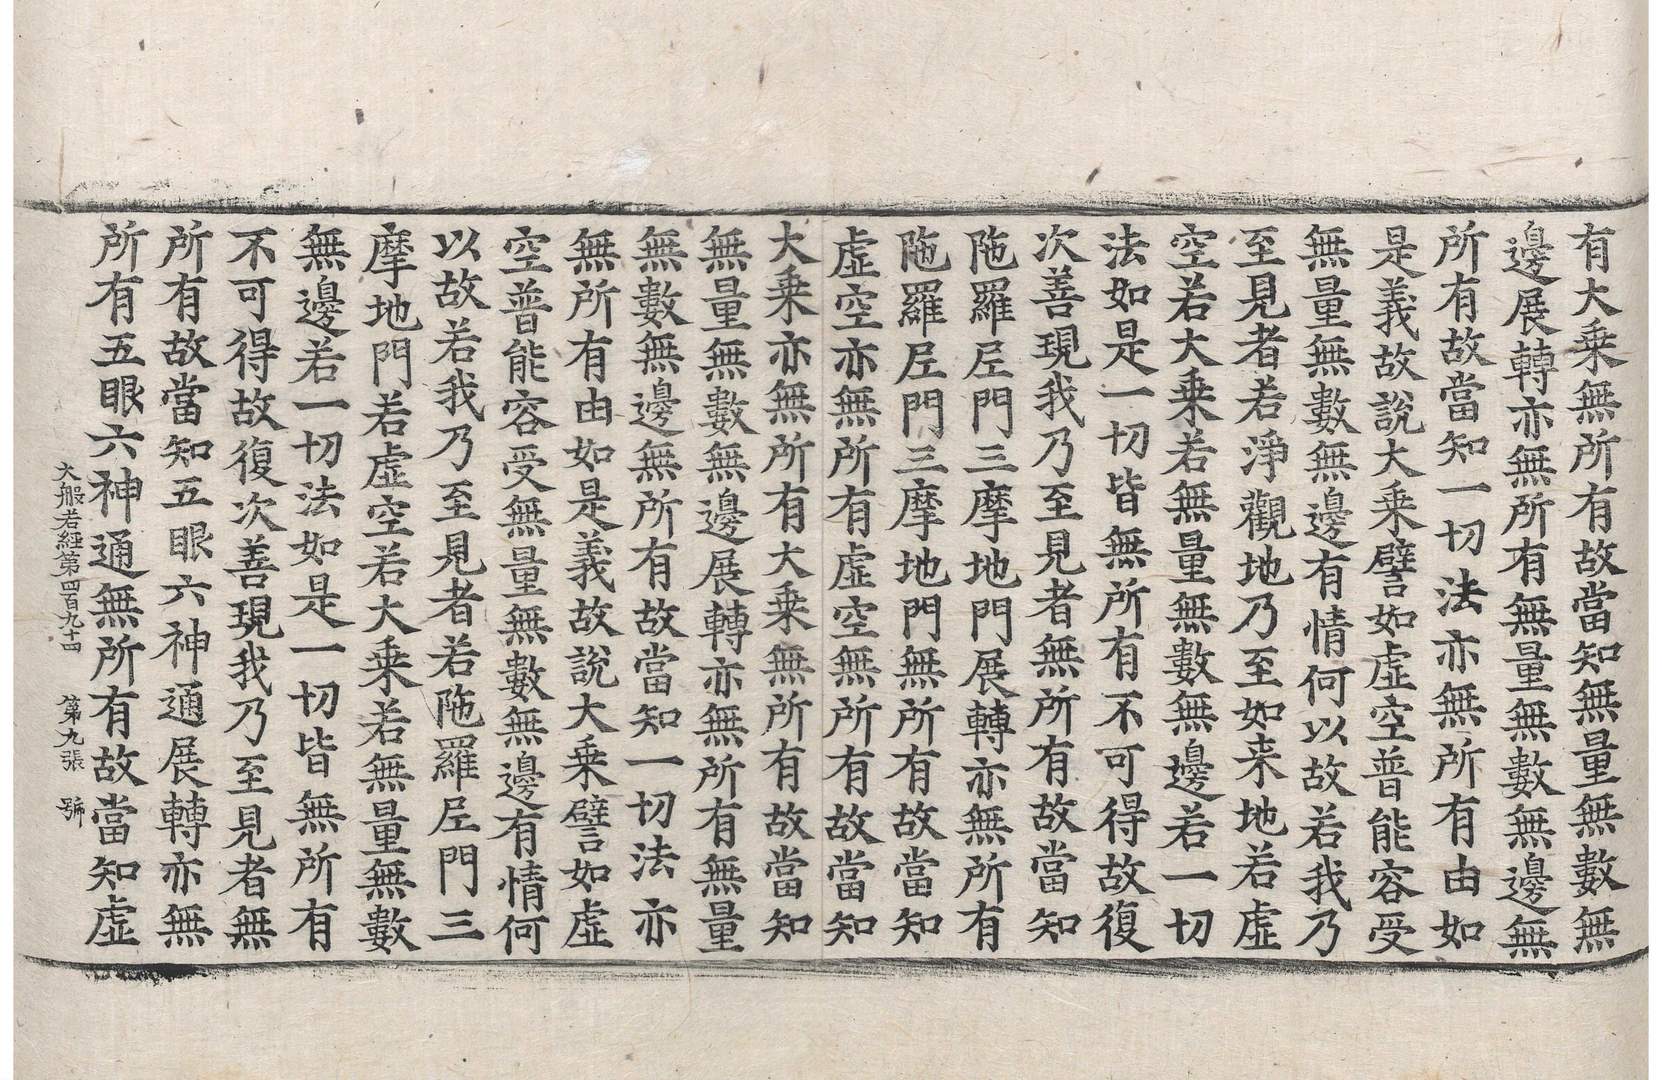 有大乗無所有故當知無量無數無
邊展轉亦無所有無量無數無邊無
所有故當知一切法亦無所有由如
是義故說大乗譬如虛空普能容受
無量無數無邊有情何以故若我乃
至見者若淨觀地乃至如来地若虛
空若大乗若無量無數無邊若一切
法如是一切皆無所有不可得故復
次善現我乃至見者無所有故當知
陁羅尼門三摩地門展轉亦無所有
陁羅尼門三摩地門無所有故當知
虛空亦無所有虛空無所有故當知
大乗亦無所有大乗無所有故當知
無量無數無邊展轉亦無所有無量
無數無邊無所有故當知一切法亦
無所有由如是義故說大乗譬如虛
空普能容受無量無數無邊有情何
以故若我乃至見者若陁羅尼門三
摩地門若虛空若大乗若無量無數
無邊若一切法如是一切皆無所有
不可得故復次善現我乃至見者無
所有故當知五眼六神通展轉亦無
所有五眼六神通無所有故當知虛
大般若經第四百九十四 第九張 號